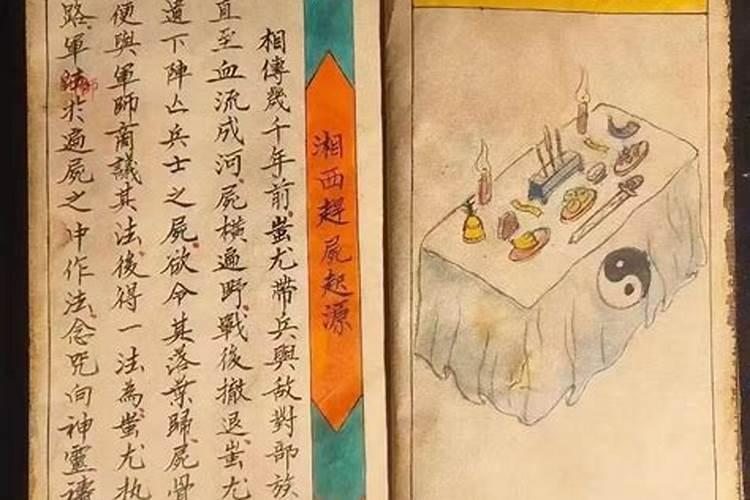 湘西趕屍起源
相傳幾千年前蚩尤帶兵與敵對部族
直至血流成河屍橫遍野戰後撤退蚩尤
遺下陣亡兵士之屍欲令其落葉歸屍骨
便與軍師商議其法後得一法為蚩尤執
路軍师於遍屍之中作法念咒向神靈禱